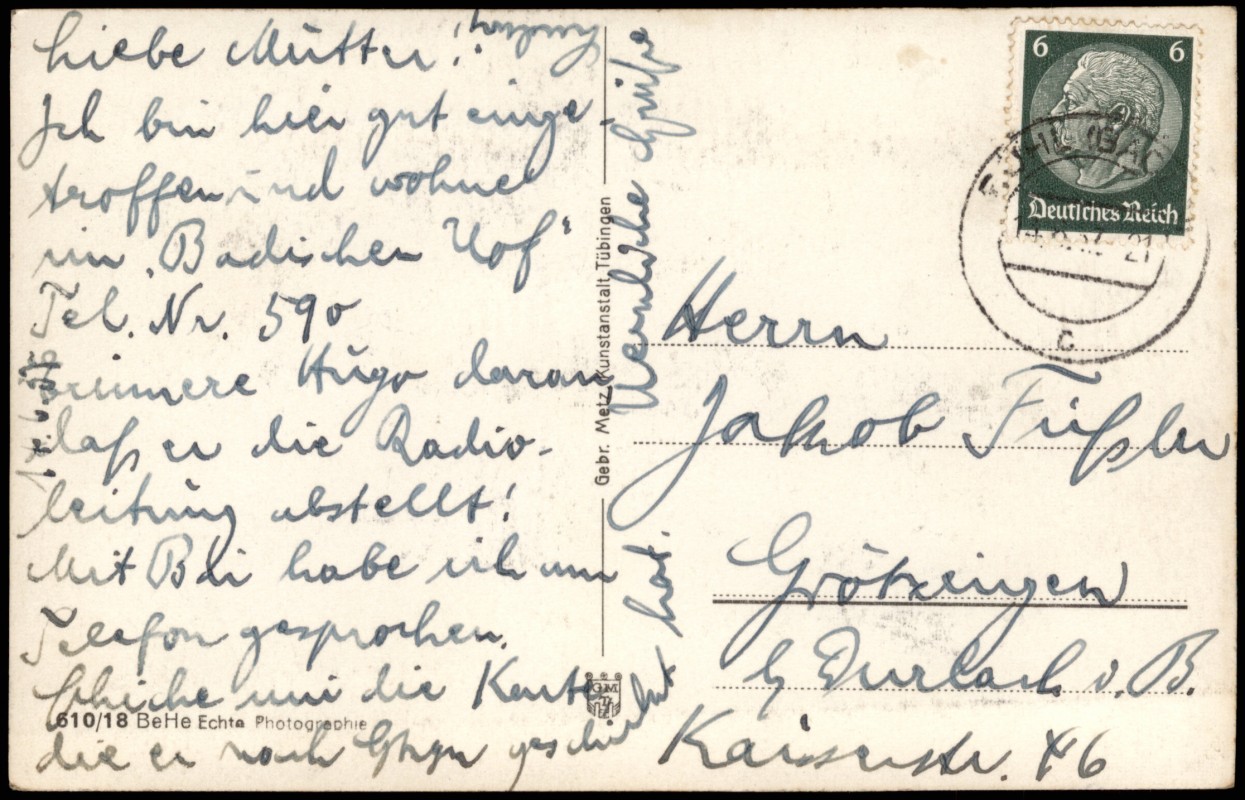 Liebe Mutter!
Ich bin hier gut einge-
troffen und wohne
im „Badischen Hof"
Tel. Nr. 590
erinnere Hugo daran
daß er die Radio-
leitung abstellt!
Mit habe ich am
Telefon gesprochen.
Schicke mir die Karte
die er nach geschickt
hat.
Herzliche Grüße
610/18 BeHe Echte Photographie
Gebr. Metz, Kunstanstalt, Tübingen
GM
6 6
Deutsches Reich
BÜHL (BAD
8.37. 21
c
Herrn
Jakob Füßler
Grötzingen
b/ Durlach i. B.
Kaiserstr. 46